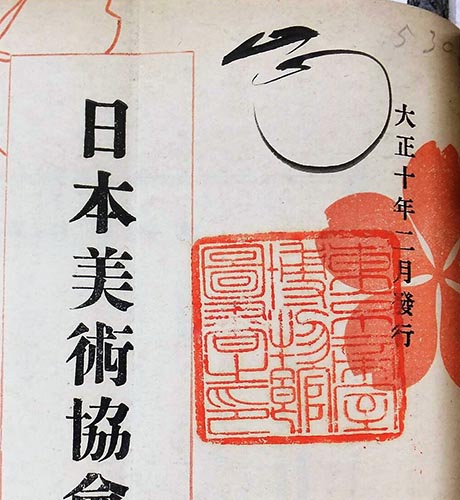 530
大正十年二月發行
東京帝室
博物館
圖書之印
日本美術協會